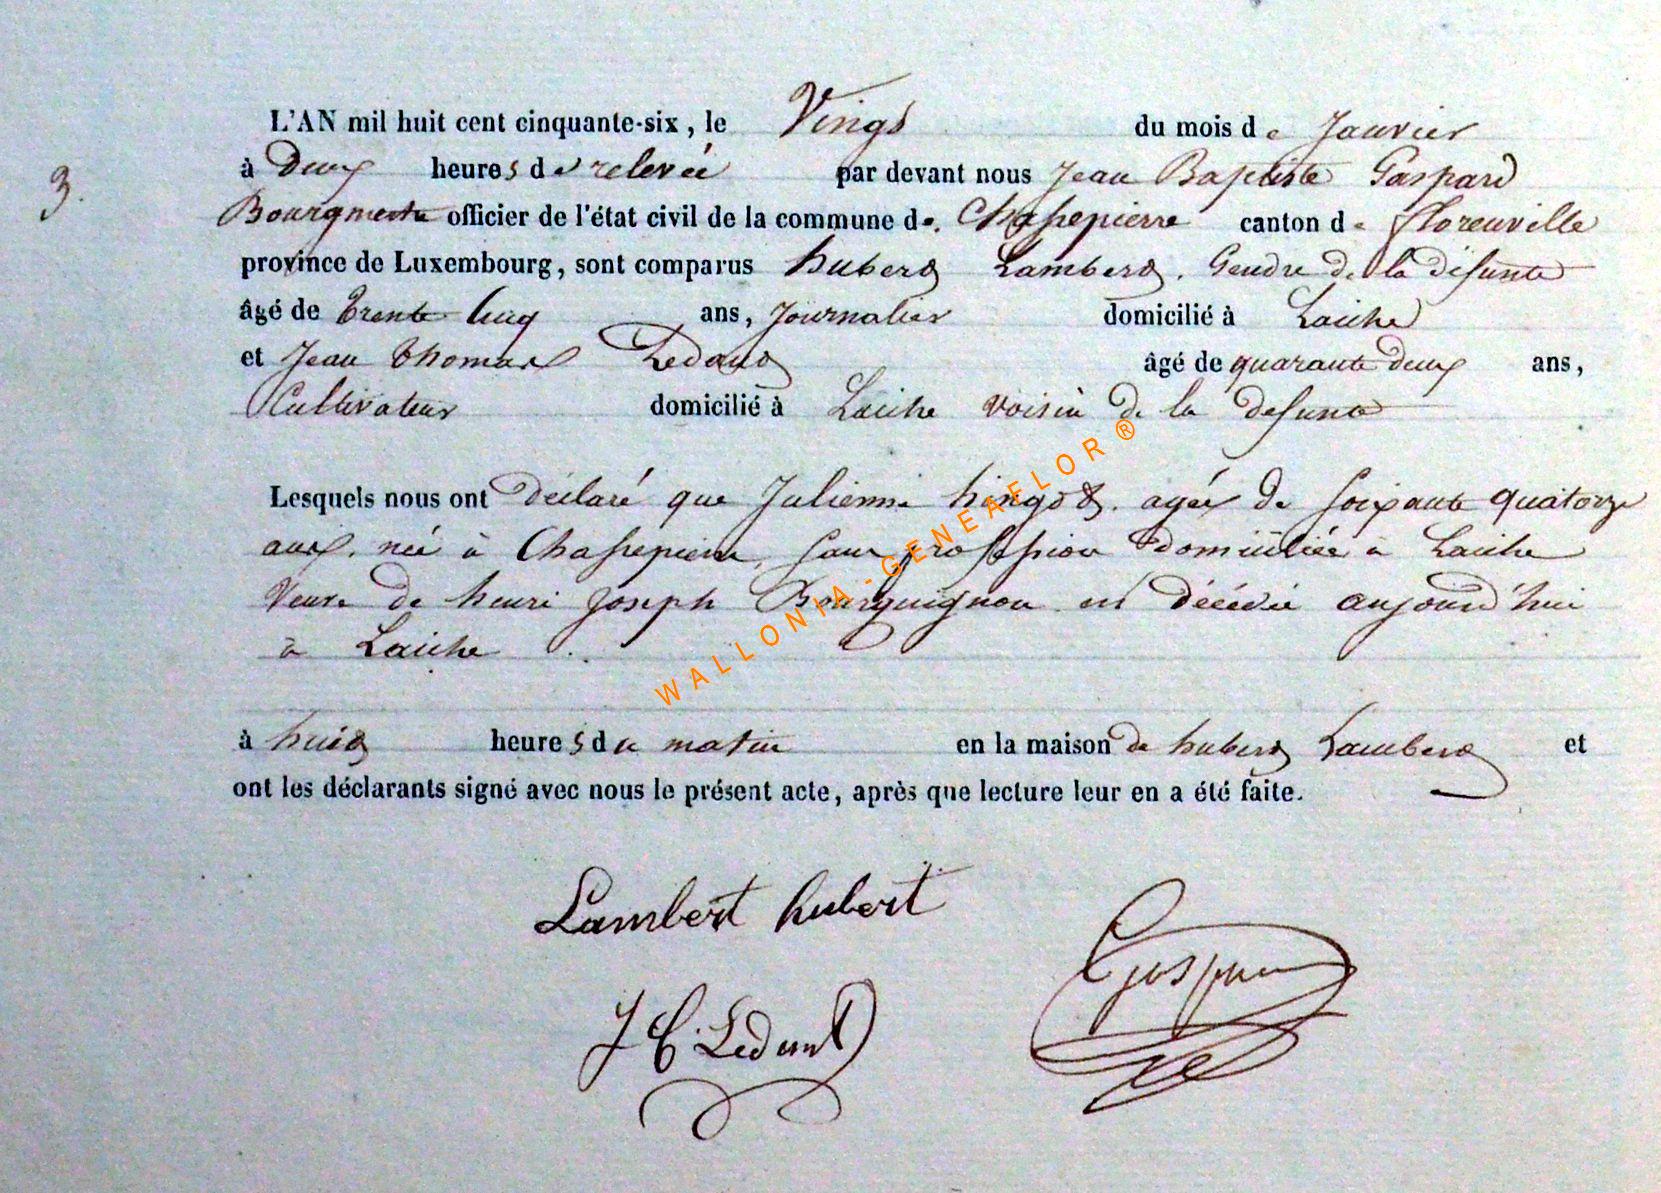 L'AN mil huit cent cinquante-six, le Vingt du mois de Janvier
3.
à Deux heures de relevée par devant nous Jean Baptiste Gaspard
Bourgmestre officier de l'état civil de la commune de Chassepierre canton de florenville
province de Luxembourg, sont comparus hubert Lambert. Gendre de la défunte
âgé de trente Cinq ans, Journalier domicilié à Laiche
et Jean thomas Ledant âgé de quarante deux ans,
Cultivateur domicilié à Laiche voisin de la defunte
Lesquels nous ont déclaré que Julienne hingot. agée de soixante quatorze
ans. née à Chassepierre, sans profession domiciliée à Laiche
Veuve de henri Joseph Bourguignon est décédée aujourd'hui
à Laiche
à huit heures du matin en la maison de hubert Lambert et
ont les déclarants signé avec nous le présent acte, après que lecture leur en a été faite.
Lambert hubert
Gaspard
J T. Ledant
WALLONIA-GENEAFLOR®